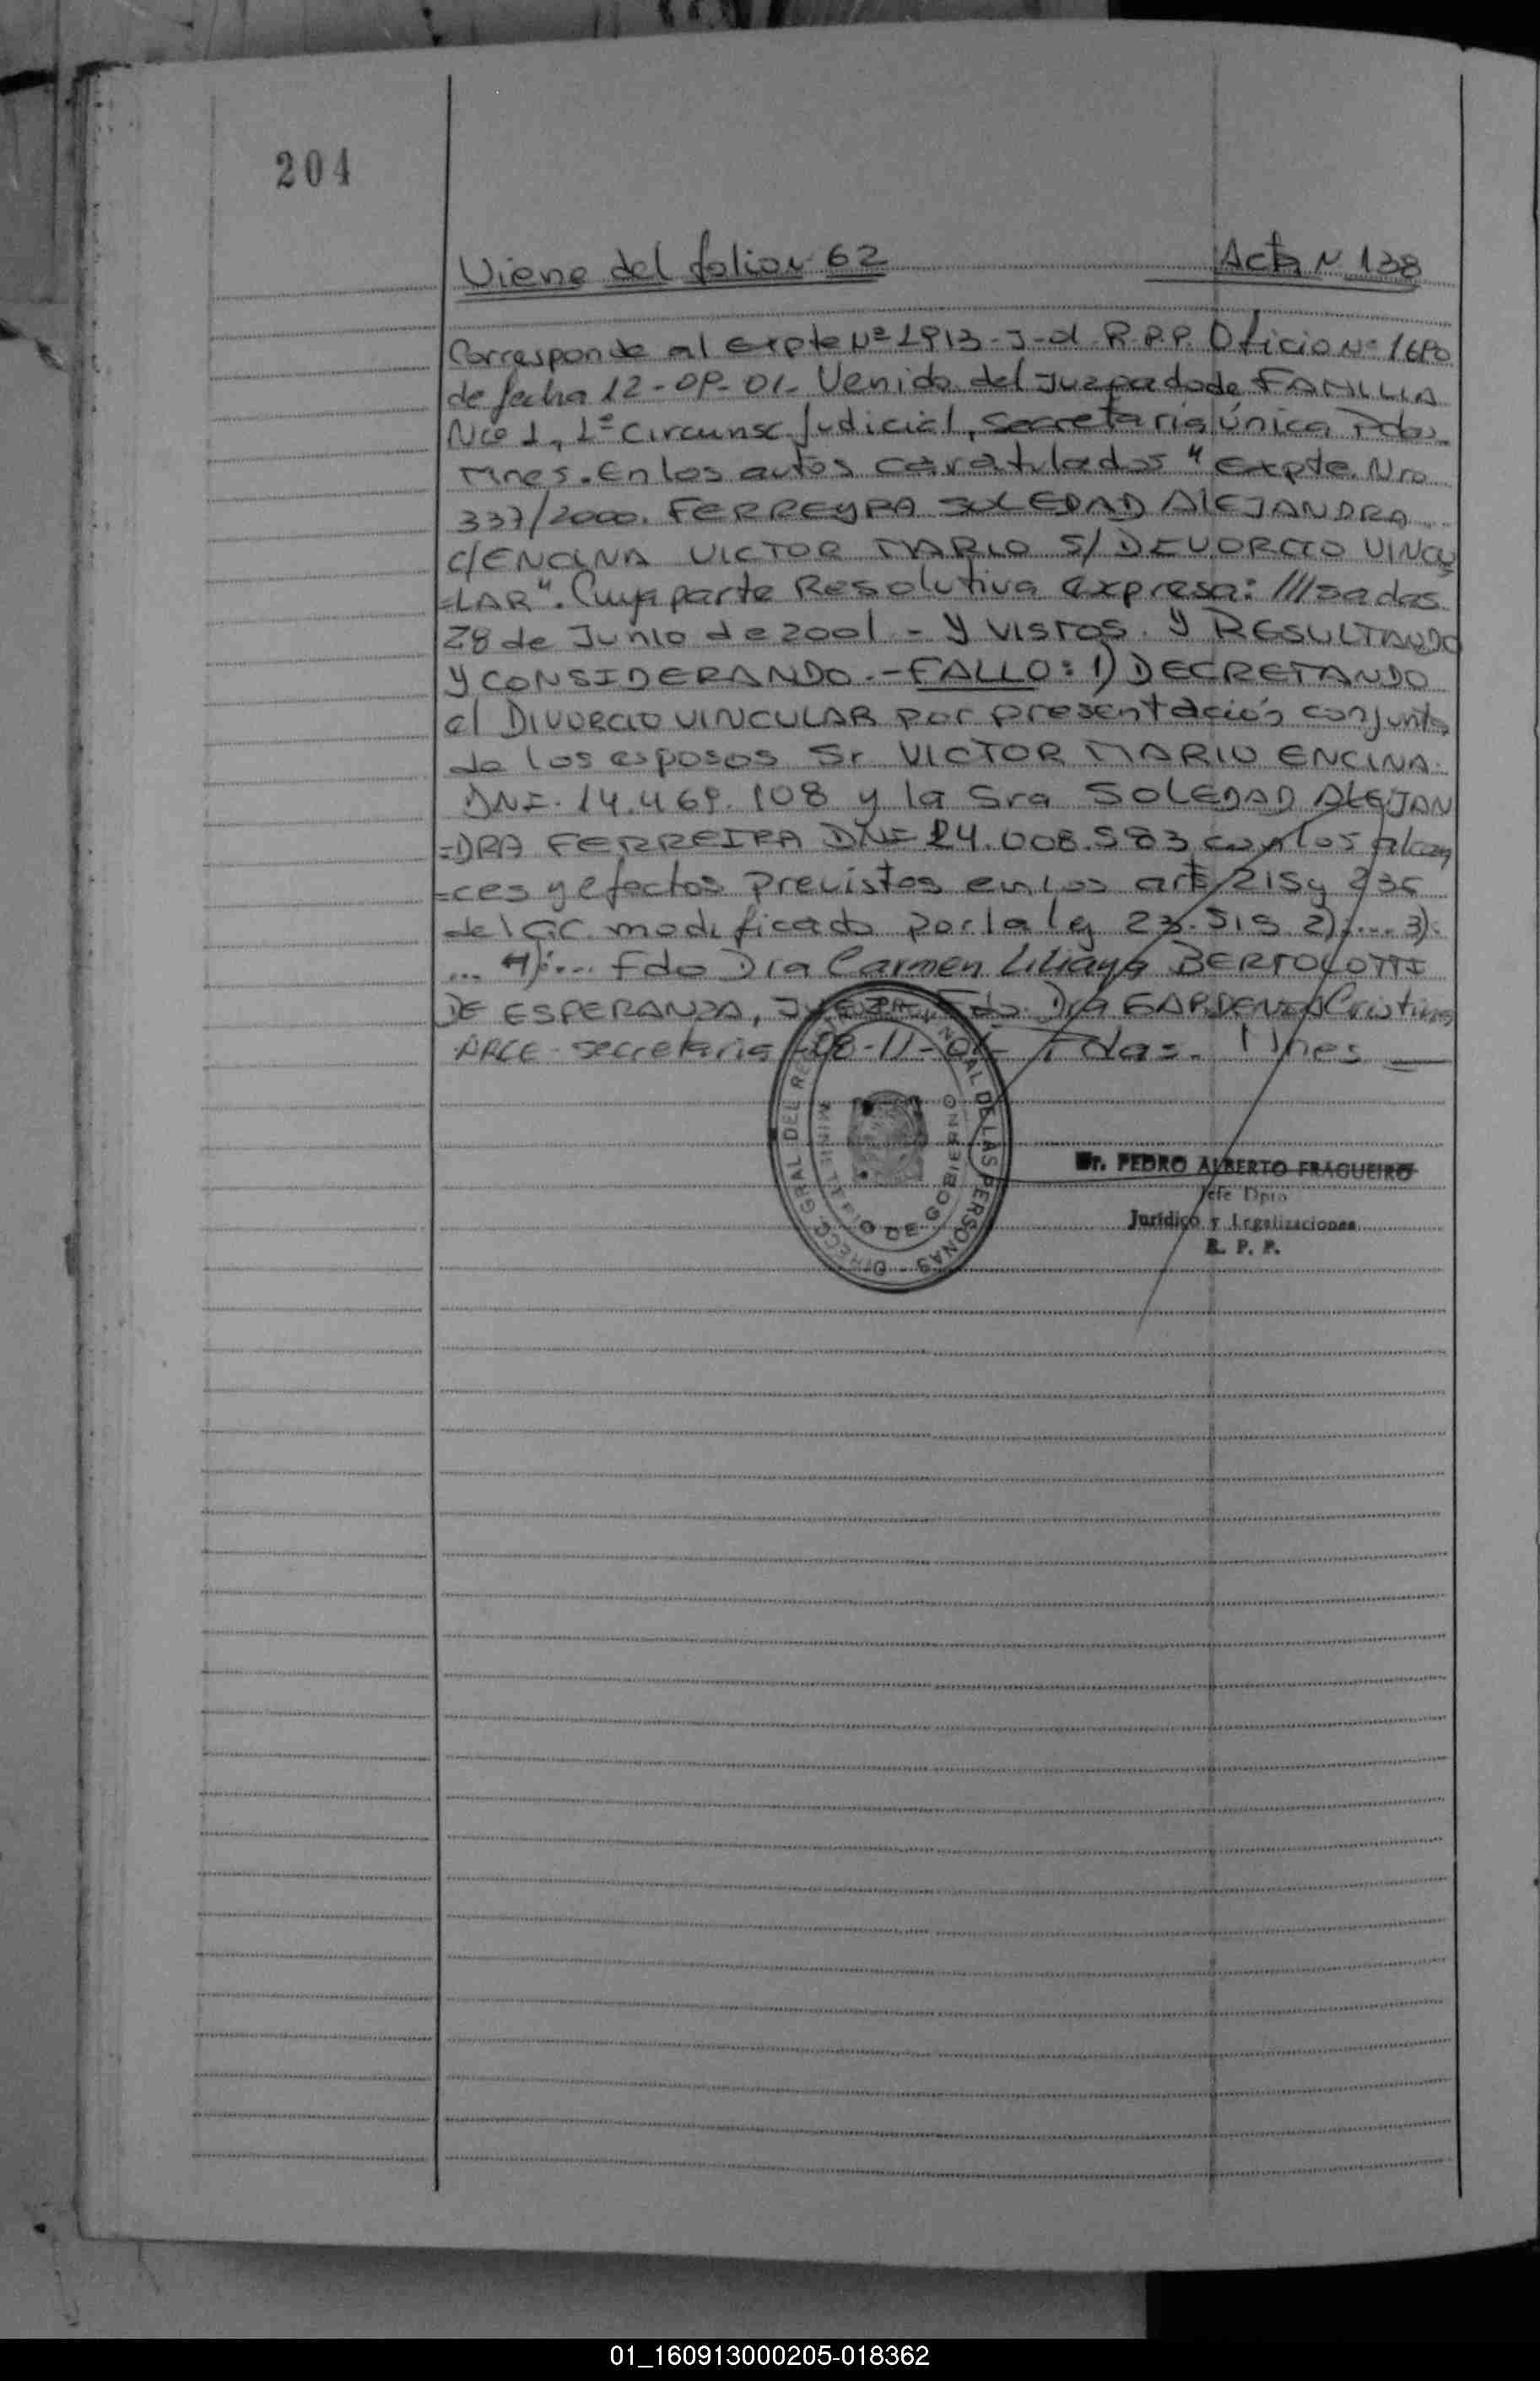 204
Viene del folio N 62 Acta N 138
Corresponde al Expte Nº 1913-J-01 R.P.P. Oficio Nº 1690
de fecha 12-09-01. Venido del Juzgado de FAMILIA
Nro 1, 1º Circunsc Judicial, Secretaría única Pdas.
Mnes. En los autos caratulados "Expte. Nro
337/2000. FERREYRA SOLEDAD ALEJANDRA
C/ENCINA VICTOR MARIO S/ DIVORCIO VINCU
=LAR". Cuya parte Resolutiva expresa: ///sadas
28 de Junio de 2001 - Y VISTOS. Y RESULTANDO
Y CONSIDERANDO.- FALLO: 1) DECRETANDO
el DIVORCIO VINCULAR por presentación conjunta
de los esposos Sr VICTOR MARIO ENCINA
DNI. 14.469.108 y la Sra SOLEDAD ALEJAN
=DRA FERREIRA DNI 24.008.583 con los alcan
=ces y efectos previstos en los art 215 y 236
del C.C. modificado por la ley 23.515 2).... 3).
... 4).... Fdo Dra Carmen Liliana BERTOLOTTI
DE ESPERANZA, JUEZA. Fdo. Dra GARDENIA Cristina
ARCE secretaria - 08-11-01- Pdas. Mnes
DIRECC. GRAL DEL REGISTRO PROVINCIAL DE LAS PERSONAS
MINISTERIO DE GOBIERNO
Dr. PEDRO ALBERTO FRAGUEIRO
Jefe Dpto
Jurídico y Legalizaciones
R. P. P.
01_160913000205-018362